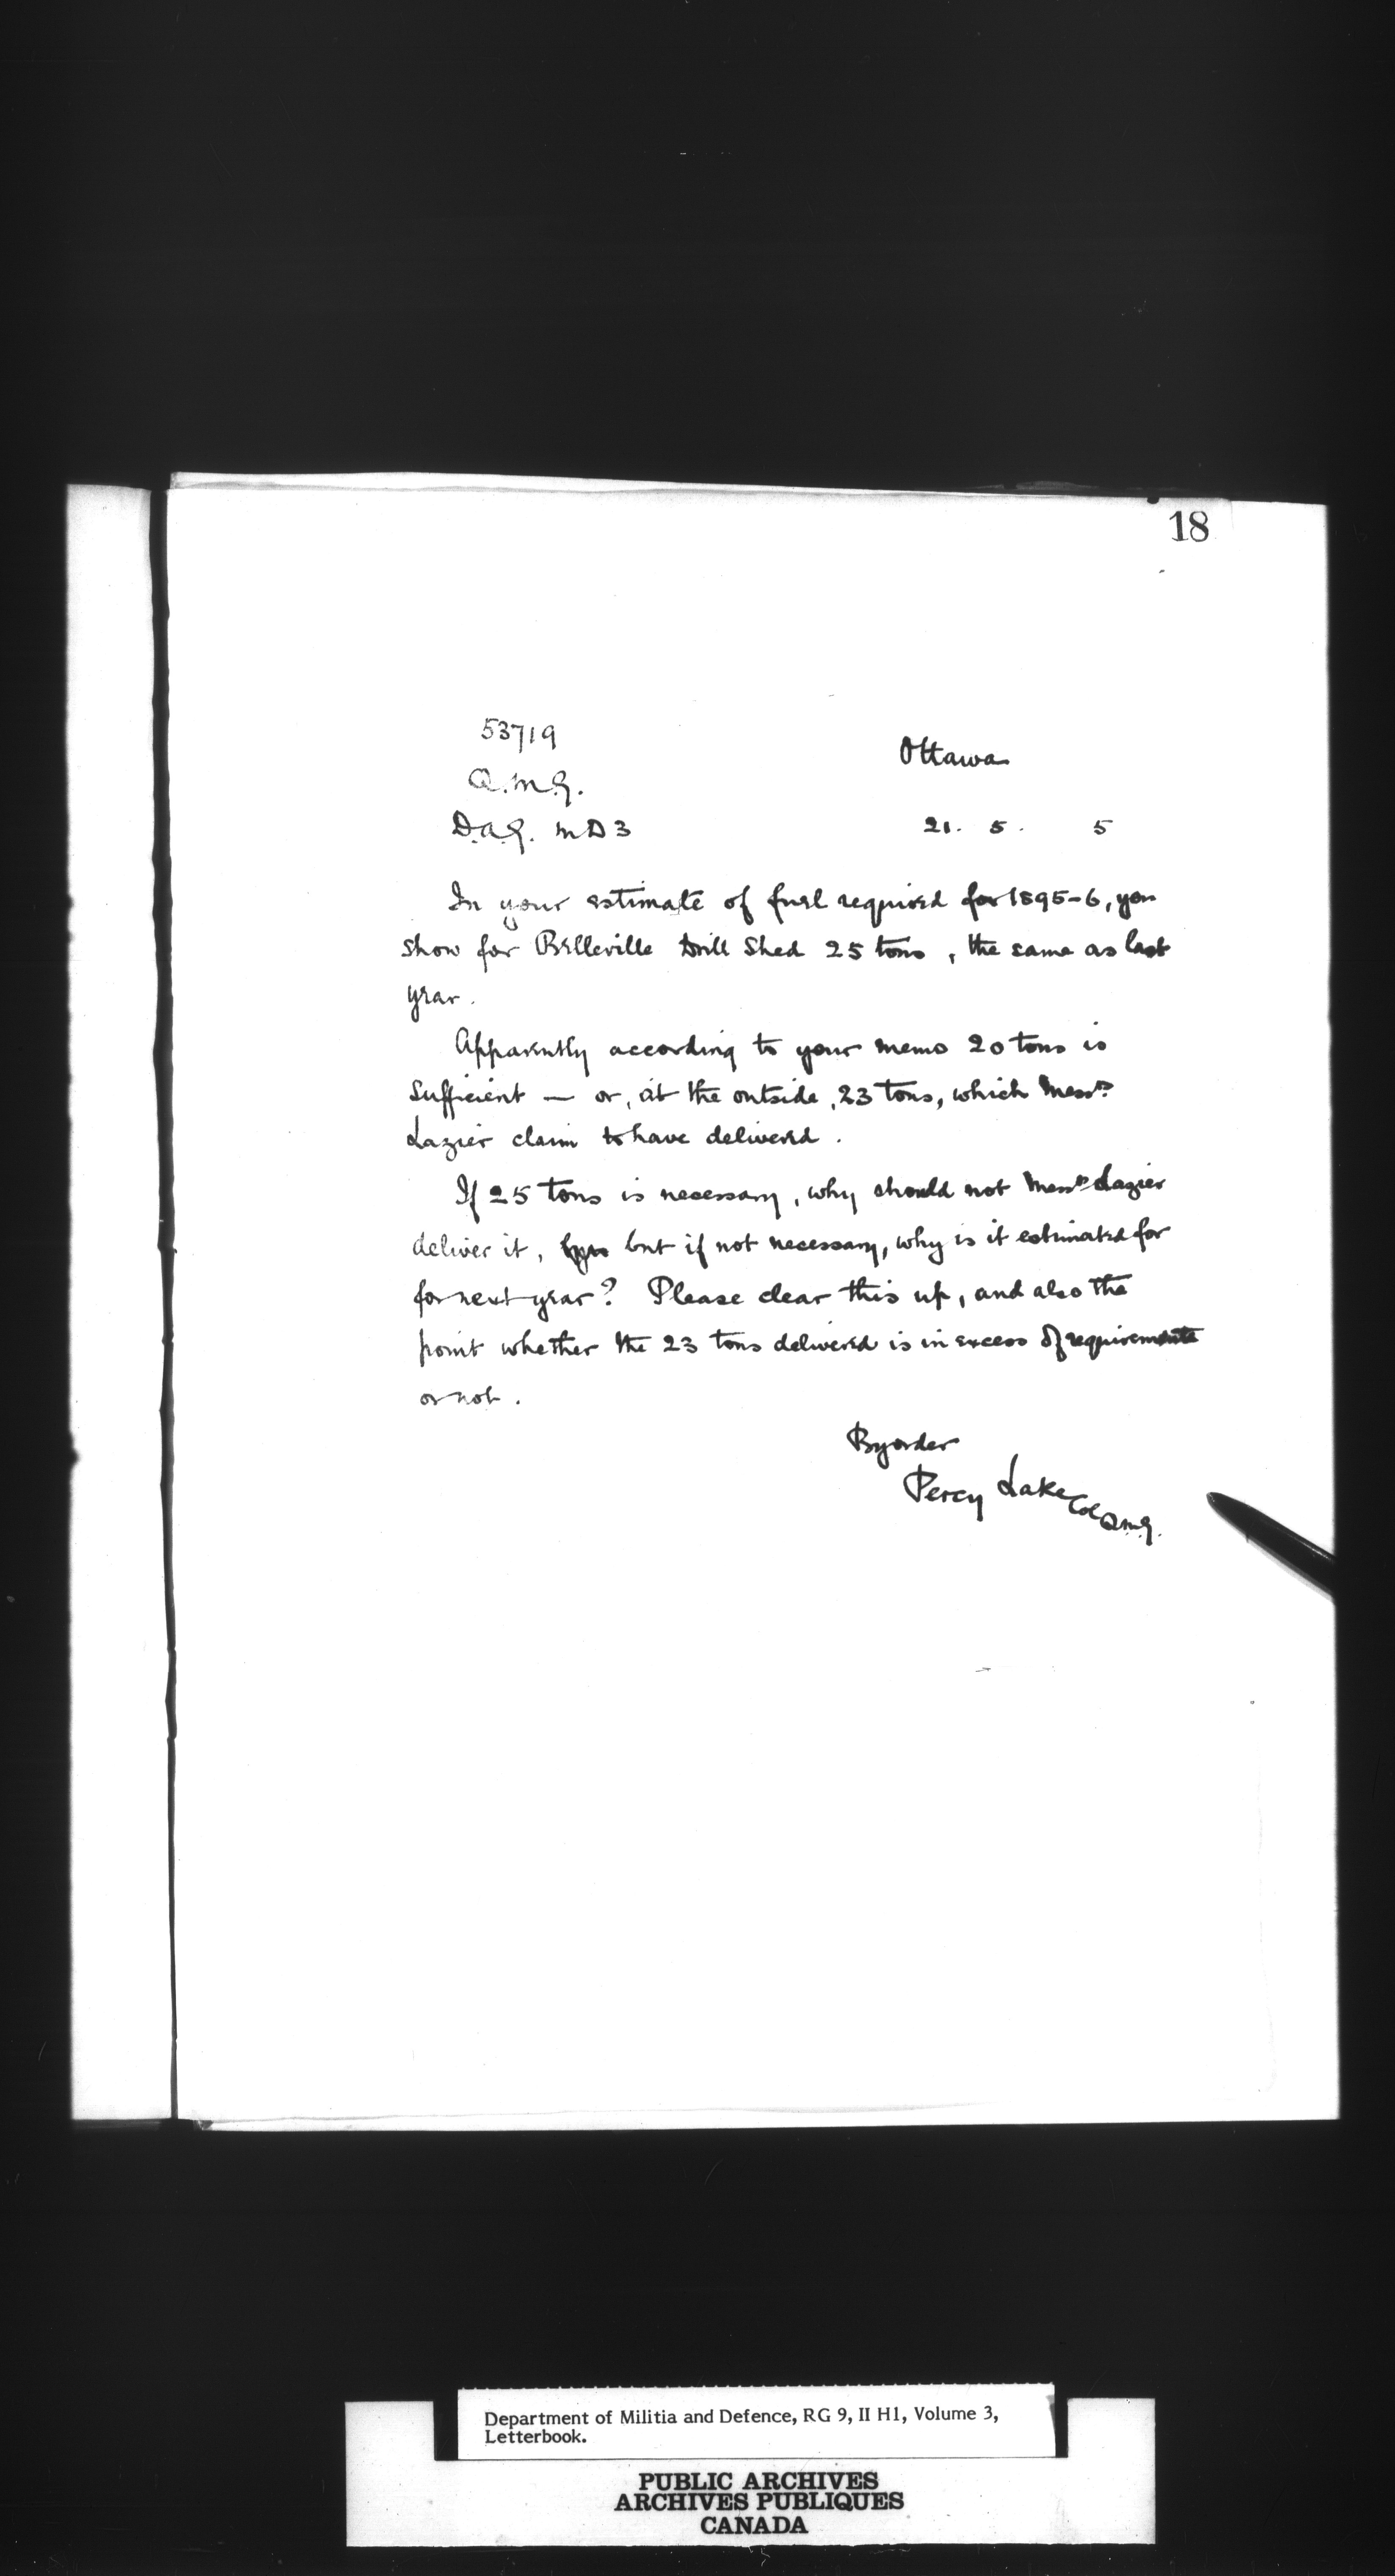 18
53719
Q.M.G.
Ottawa
D.A.G. MD 3
21. 5. 5
In your estimate of fuel required for 1895-6, you
show for Belleville Drill Shed 25 tons, the same as last
year.
Apparently according to your memo 20 tons is
sufficient — or, at the outside, 23 tons, which Messrs.
Lazier claim to have delivered.
If 25 tons is necessary, why should not Messrs Lazier
deliver it, but if not necessary, why is it estimated for
for next year? Please clear this up, and also the
point whether the 23 tons delivered is in excess of requirements
or not.
By order
Percy Lake Col QMG.
Department of Militia and Defence, RG 9, II H1, Volume 3,
Letterbook.
PUBLIC ARCHIVES
ARCHIVES PUBLIQUES
CANADA